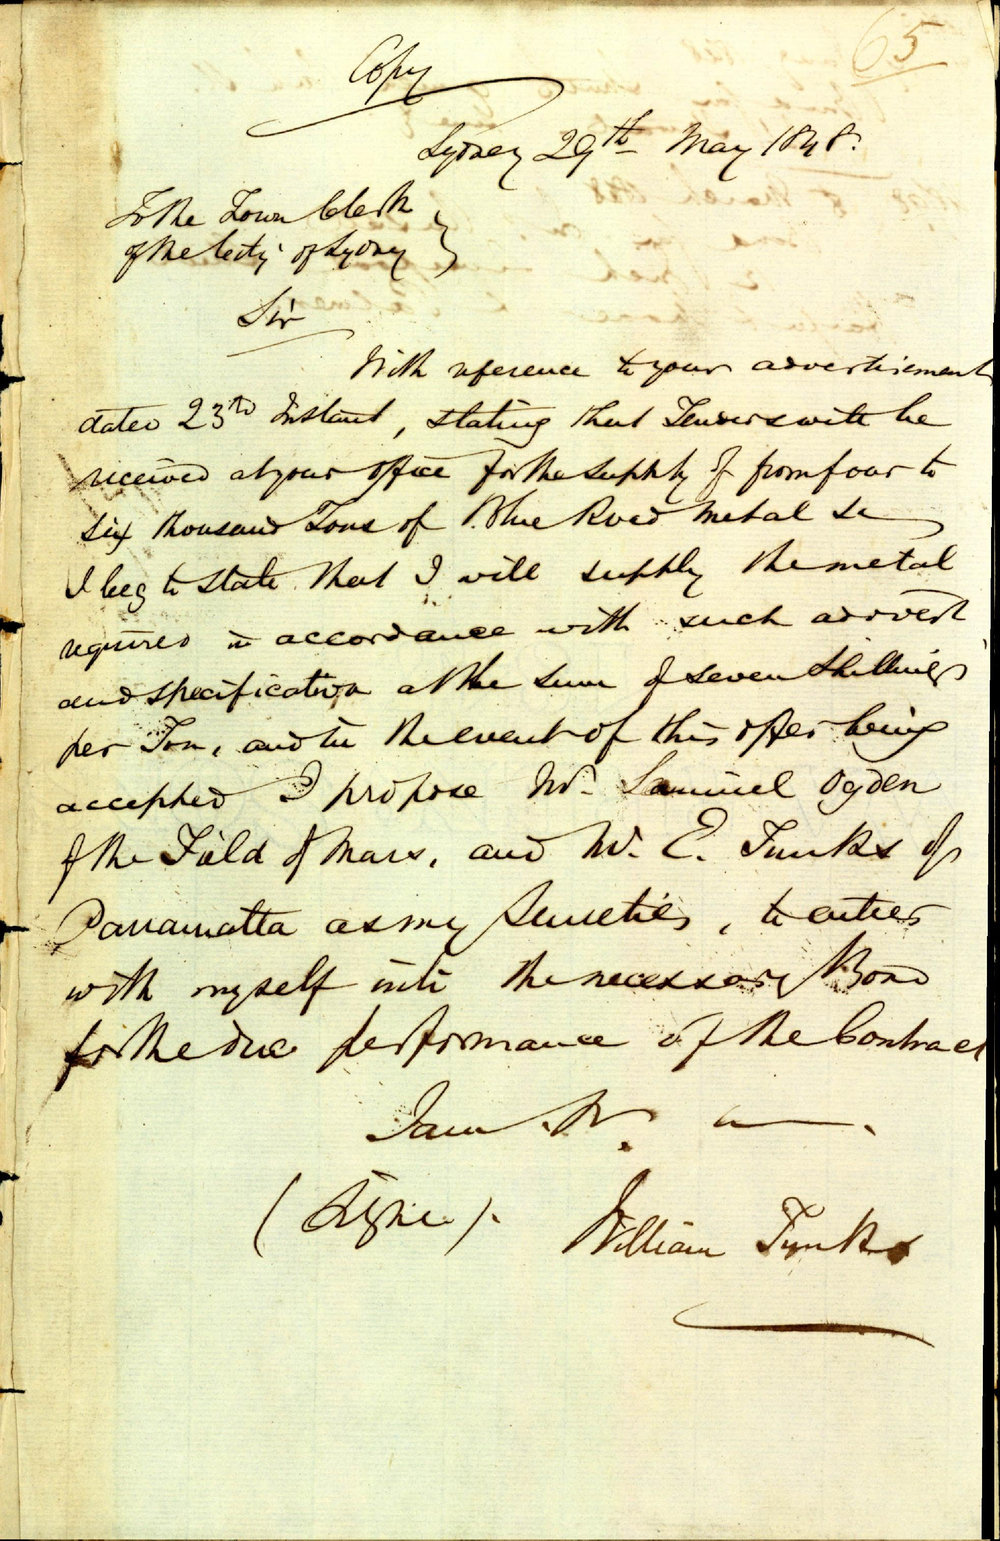 65
Copy
Sydney 29th May 1848.
To the Town Clerk
of the City of Sydney
Sir
With reference to your advertisement
dated 23rd Instant, stating that Tenders will be
received at your office for the supply of from four to
six thousand Tons of Blue Road Metal &c
I beg to state that I will supply the metal
required in accordance with such advert
and specification at the sum of seven shillings
per Ton, and in the event of this offer being
accepted I propose Mr. Samuel Ogden
of the Field of Mars, and Mr. E. Tunks of
Parramatta as my Sureties, to enter
with myself into the necessary Bond
for the due performance of the Contract
I am Sir.
(Signed).
William Tunks